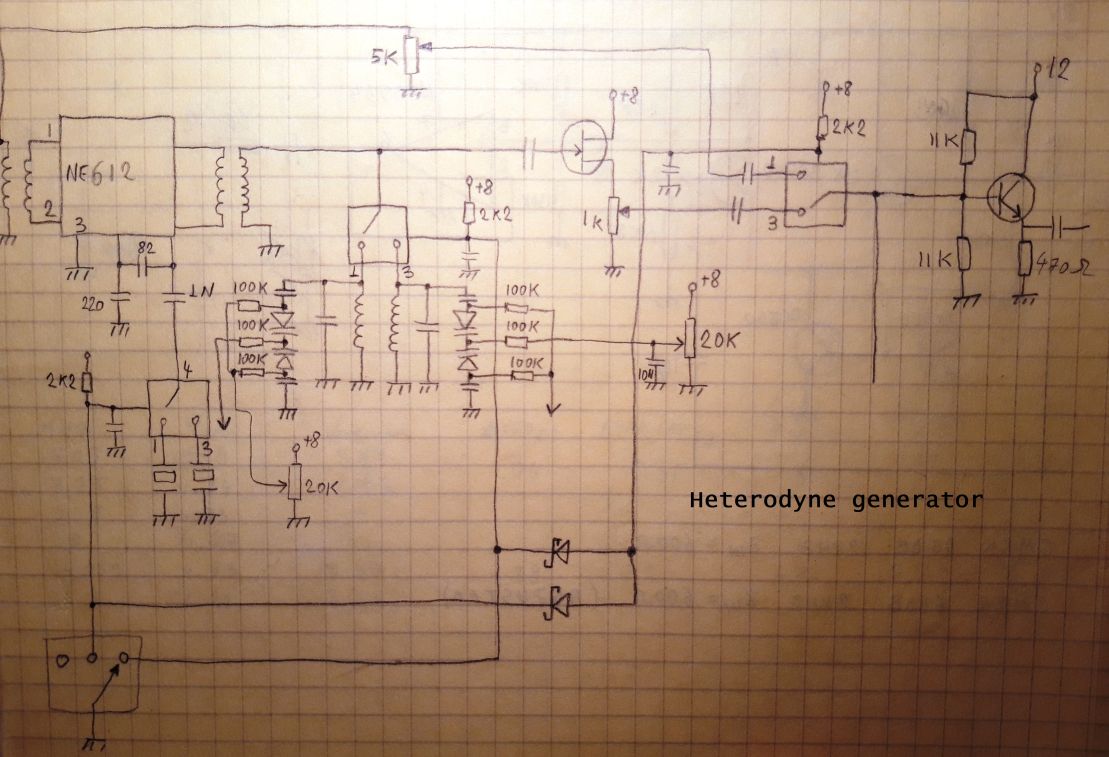 5K
+8
12
+8
2K2
1
NE612
2
3
11K
+8
2K2
1K
1
3
82
220
1N
1
3
11K
470Ω
100K
100K
100K
100K
100K
100K
+8
20K
10N
2K2
4
1
3
+8
20K
Heterodyne generator